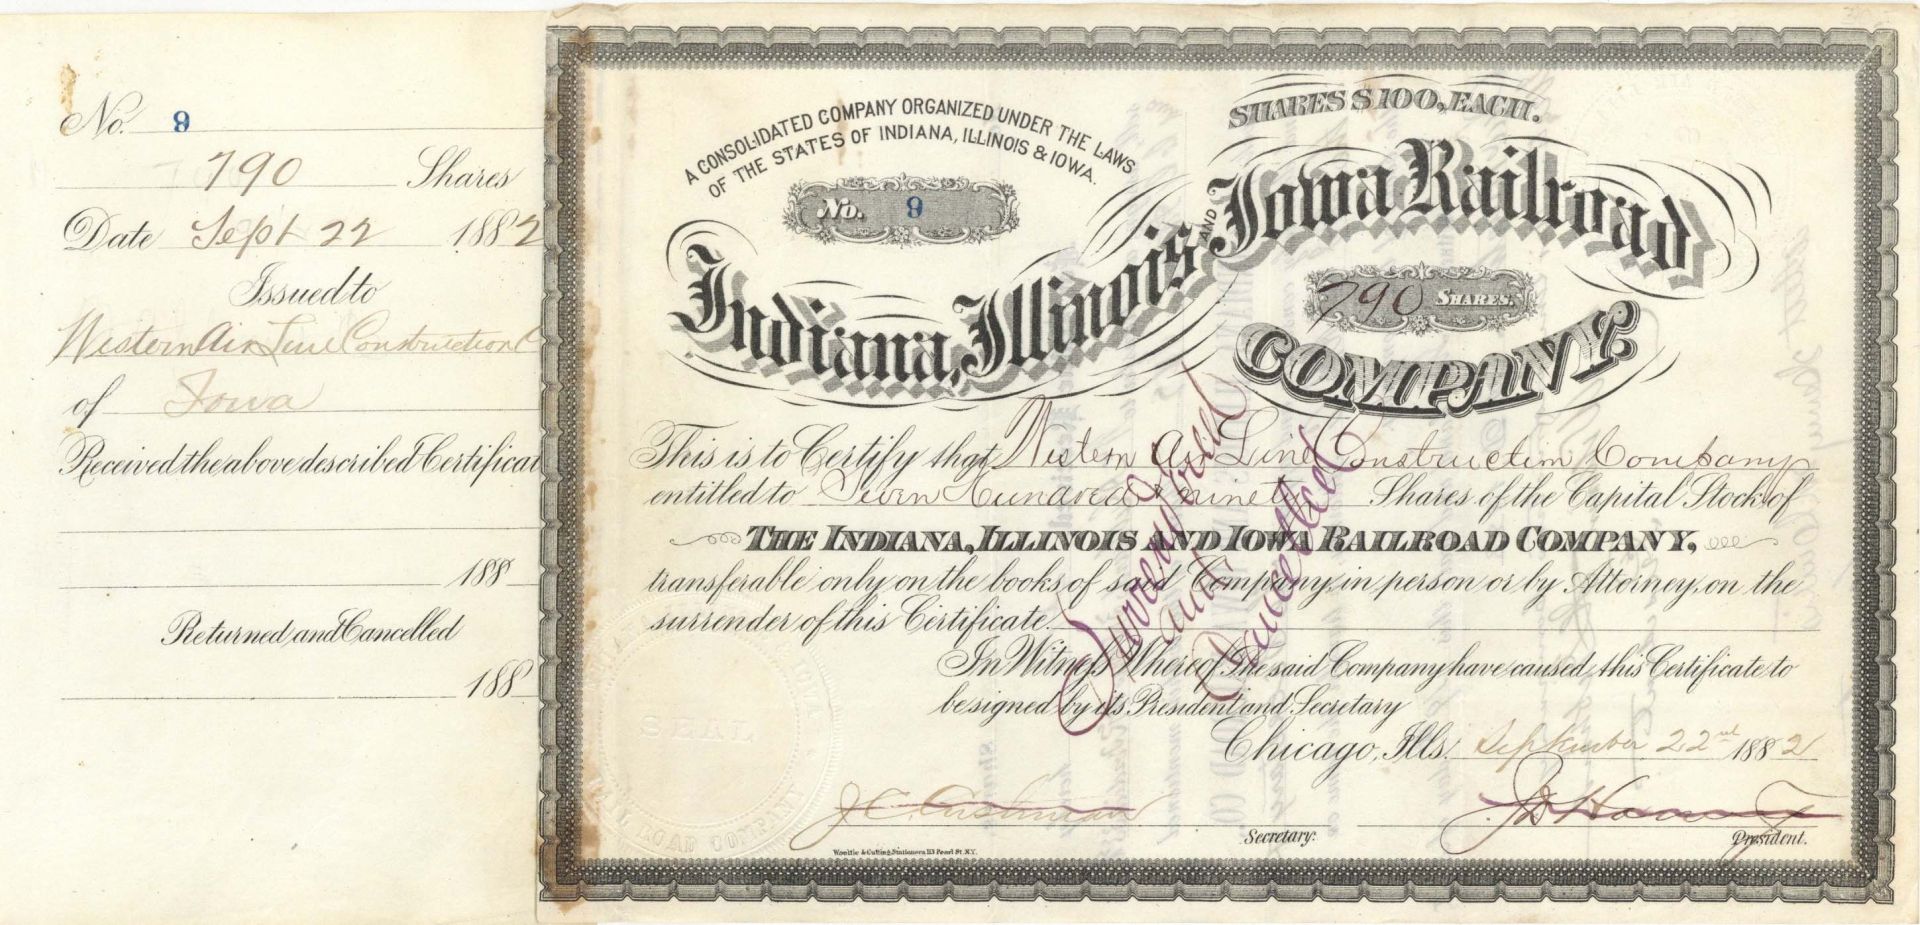 No. 9
790 Shares
Date Sept 22 1882
Issued to
Western Air Line Construction C
of Iowa
Received the above described Certificat
188
Returned and Cancelled
188
A CONSOLIDATED COMPANY ORGANIZED UNDER THE LAWS
OF THE STATES OF INDIANA, ILLINOIS & IOWA.
No. 9
SHARES $100, EACH.
Indiana, Illinois AND Iowa Railroad
790 SHARES.
COMPANY.
This is to Certify that Western Air Line Construction Company
entitled to Seven Hundred & ninety Shares of the Capital Stock of
THE INDIANA, ILLINOIS AND IOWA RAILROAD COMPANY,
transferable only on the books of said Company, in person or by Attorney, on the
surrender of this Certificate.
Surrendered
and
Cancelled
In Witness Whereof, The said Company have caused this Certificate to
be signed by its President and Secretary
Chicago, Ills. September 22nd 1882
SEAL
RAIL ROAD COMPANY
J.C. Cushman
Secretary.
President.